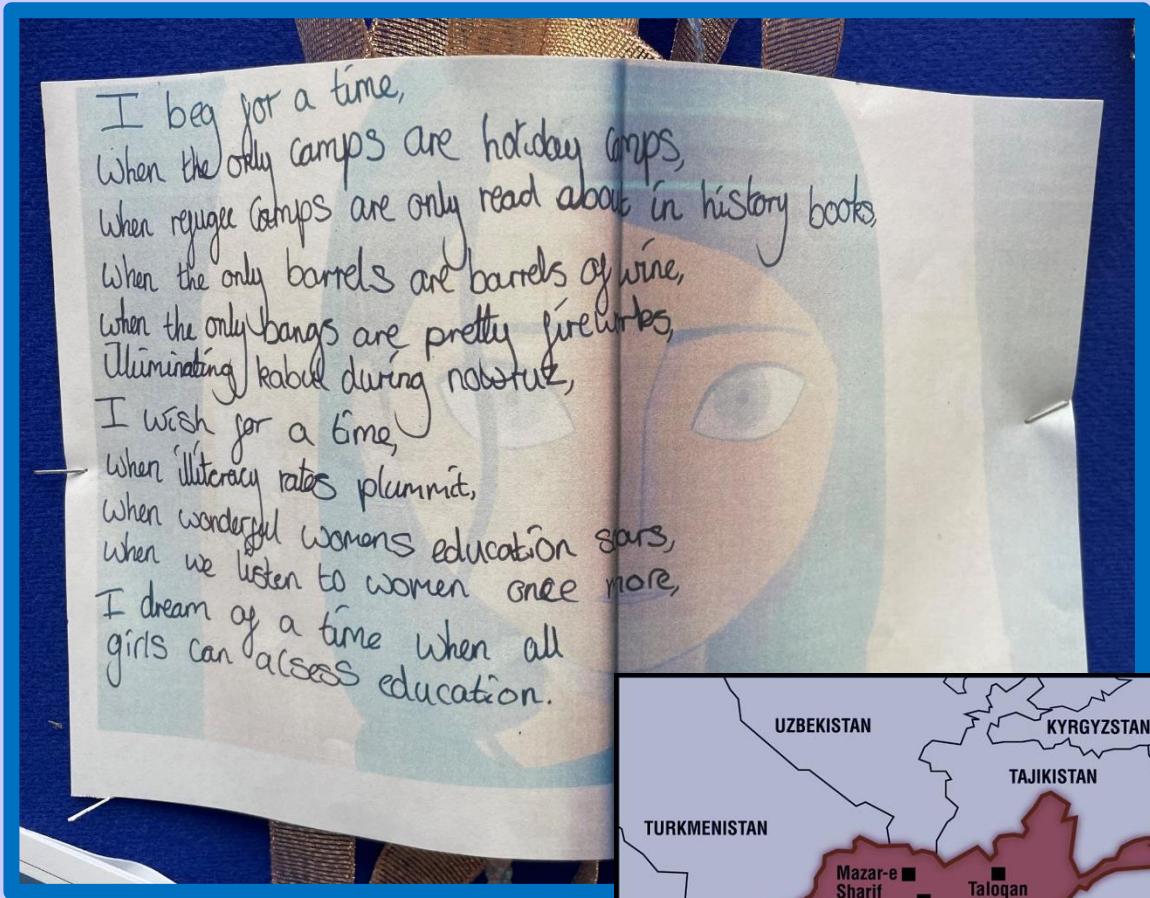 I beg for a time,
When the only camps are holiday camps,
When refugee camps are only read about in history books,
When the only barrels are barrels of wine,
when the only bangs are pretty fireworks,
illuminating kabul during nowruz,
I wish for a time,
when illiteracy rates plummit,
when wonderful womens education soars,
when we listen to women once more,
I dream of a time when all
girls can acsess education.
UZBEKISTAN
KYRGYZSTAN
TAJIKISTAN
TURKMENISTAN
Mazar-e
Sharif
Taloqan